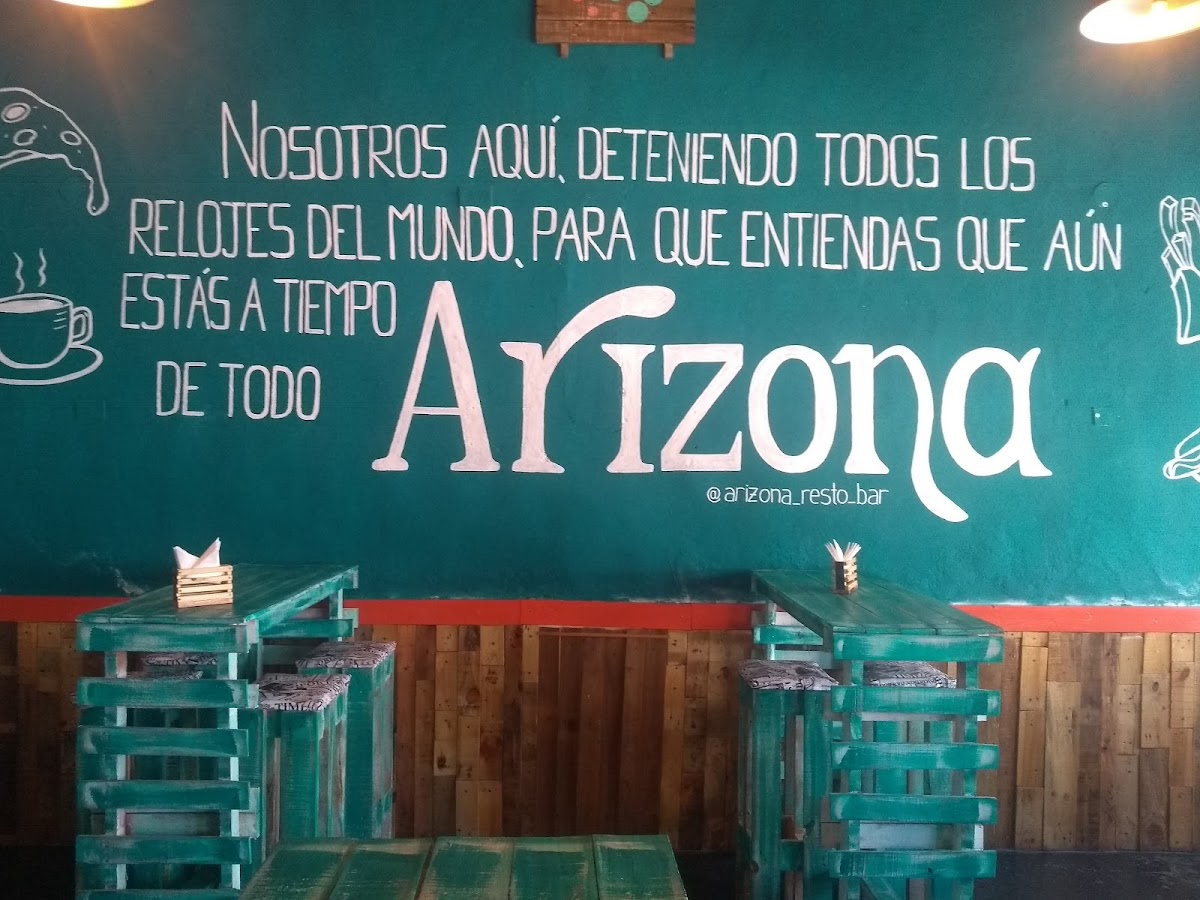 Nosotros aquí, deteniendo todos los
relojes del mundo, para que entiendas que aún
estás a tiempo
de todo
Arizona
@arizona_resto_bar